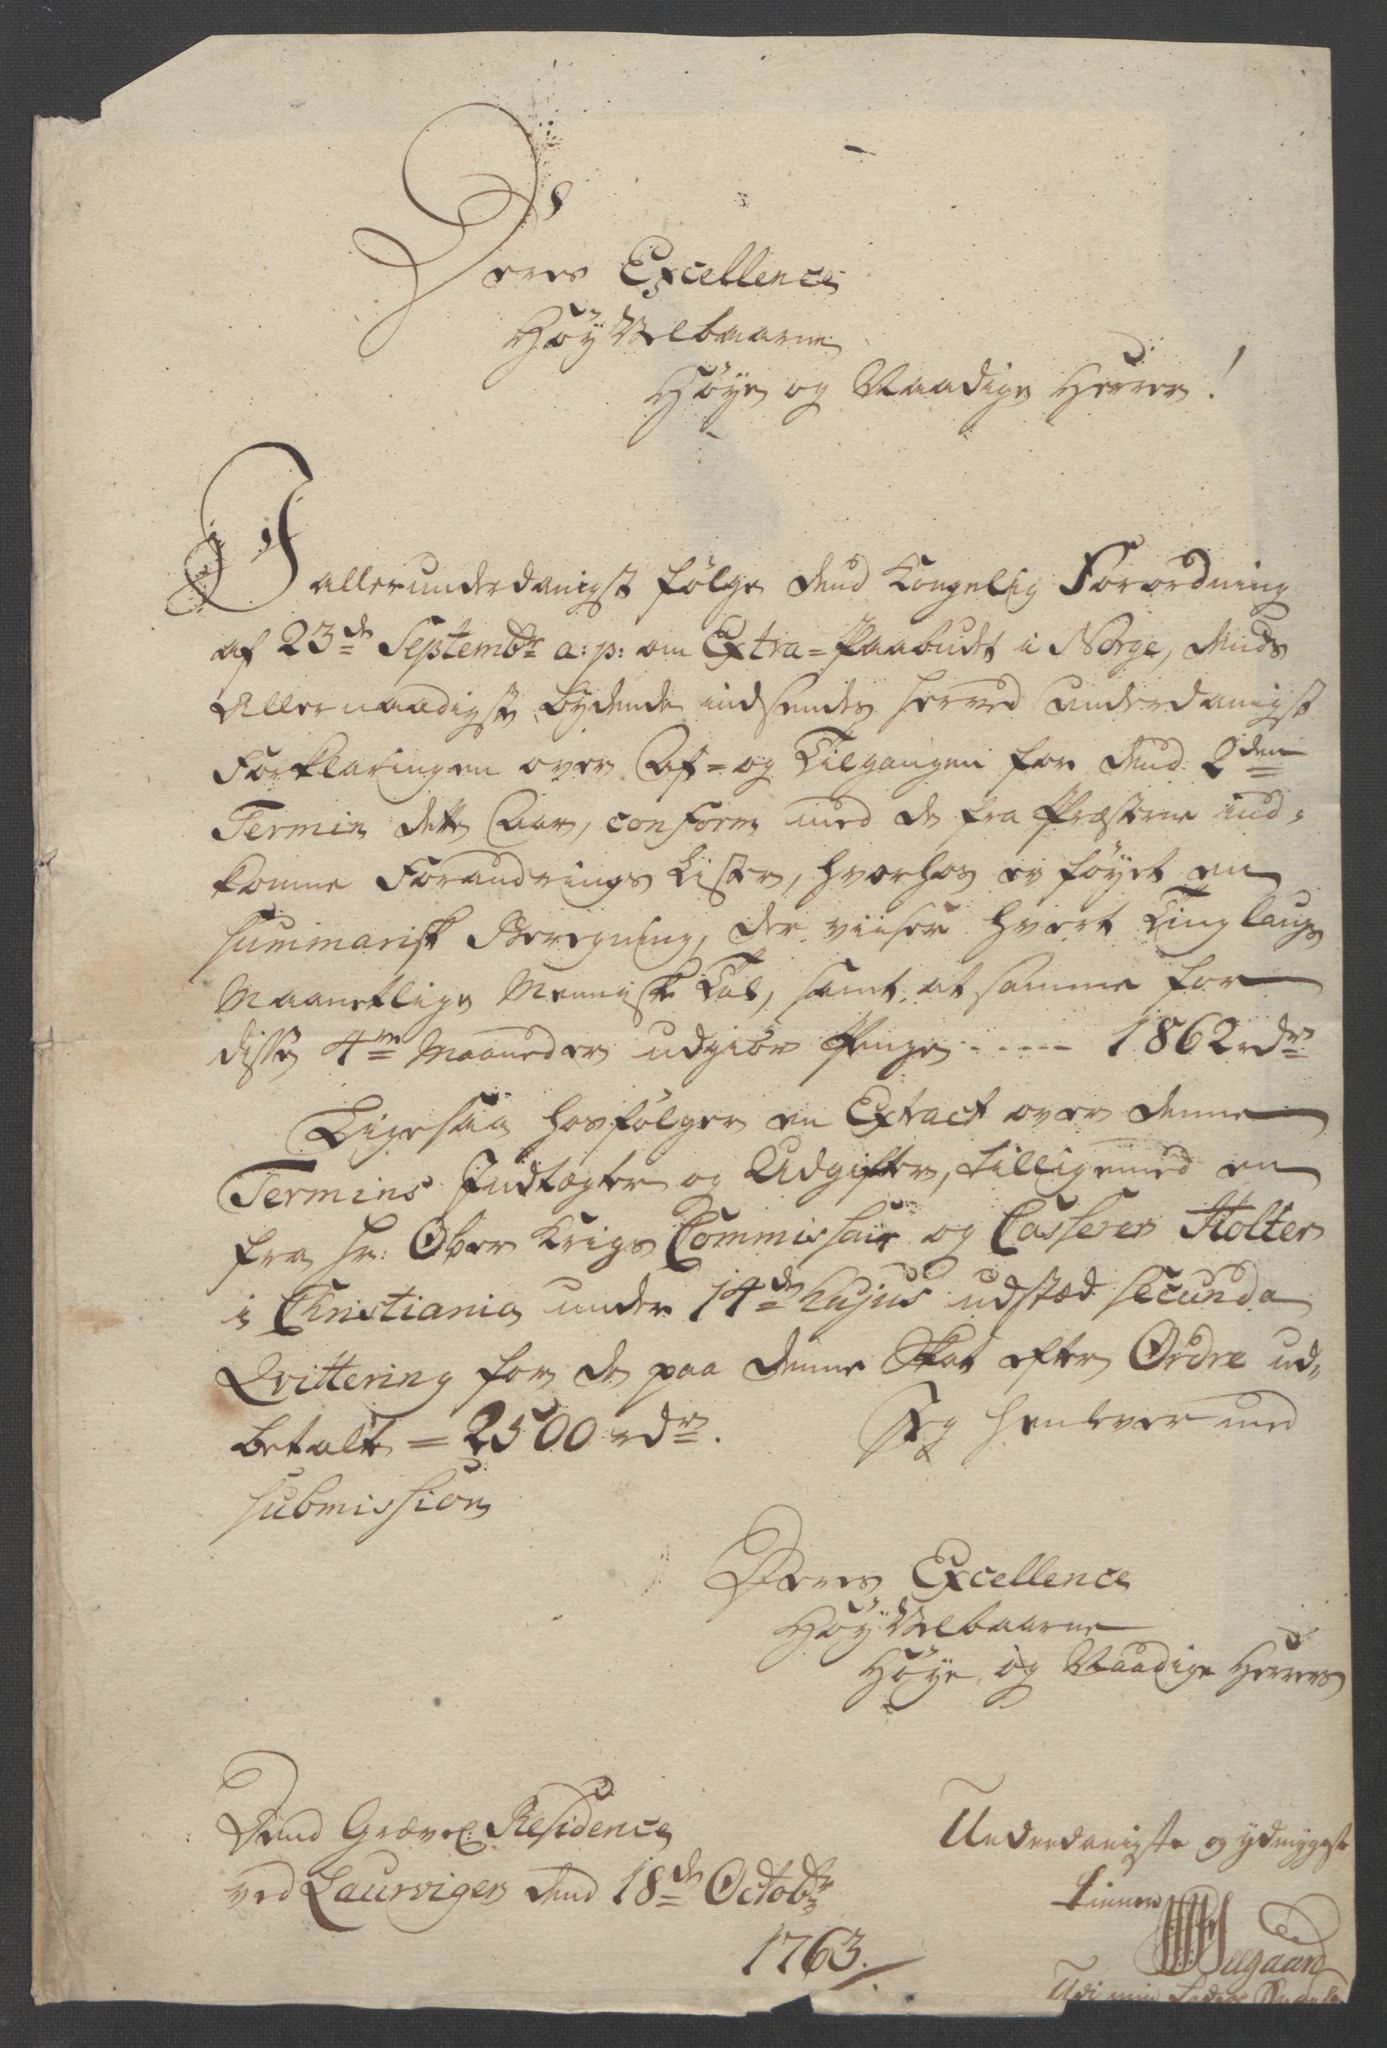 Deres Excellence
HöyVelbaarne
Höye og Naadige Herrer!
I allerunderdanigst følge dend Kongelig Forordning
af 23de Septembr a: p: om Extra-Paabudet i Norge, dends
Allernaadigste bydende indsendes herved underdanigst
Forklaringen over Af- og Tilgangen for dend 2den
Termin dette Aar, conform med de fra Præsterne ind-
komne Forandrings Lister, hvorhos er föyet en
summarisk Beregning, der viiser hvert Tinglaugs
Maanetlige Menniske Tal, samt at samme for
disse 4re Maaneder udgiör Penge ----- 1862 rdr
Ligesaa hosfölger en Extract over denne
Termins Indtægter og Udgifter, tilligemed en
fra Hr: Ober Krigs Commissair og Casserer Holter
i Christiania under 14de hujus udstæd secunda
Qvittering for de paa denne Skat efter Ordre ud-
betalte = 2500 rdr. Jeg henlever med
submission
Deres Excellence
HöyVelbaarne
Höye og Naadige Herrers
Dend Grævel: Residence
ved Laurvigen dend 18de Octobr
1763.
Underdanigste og ydmygeste
tienner
Udi min Faders